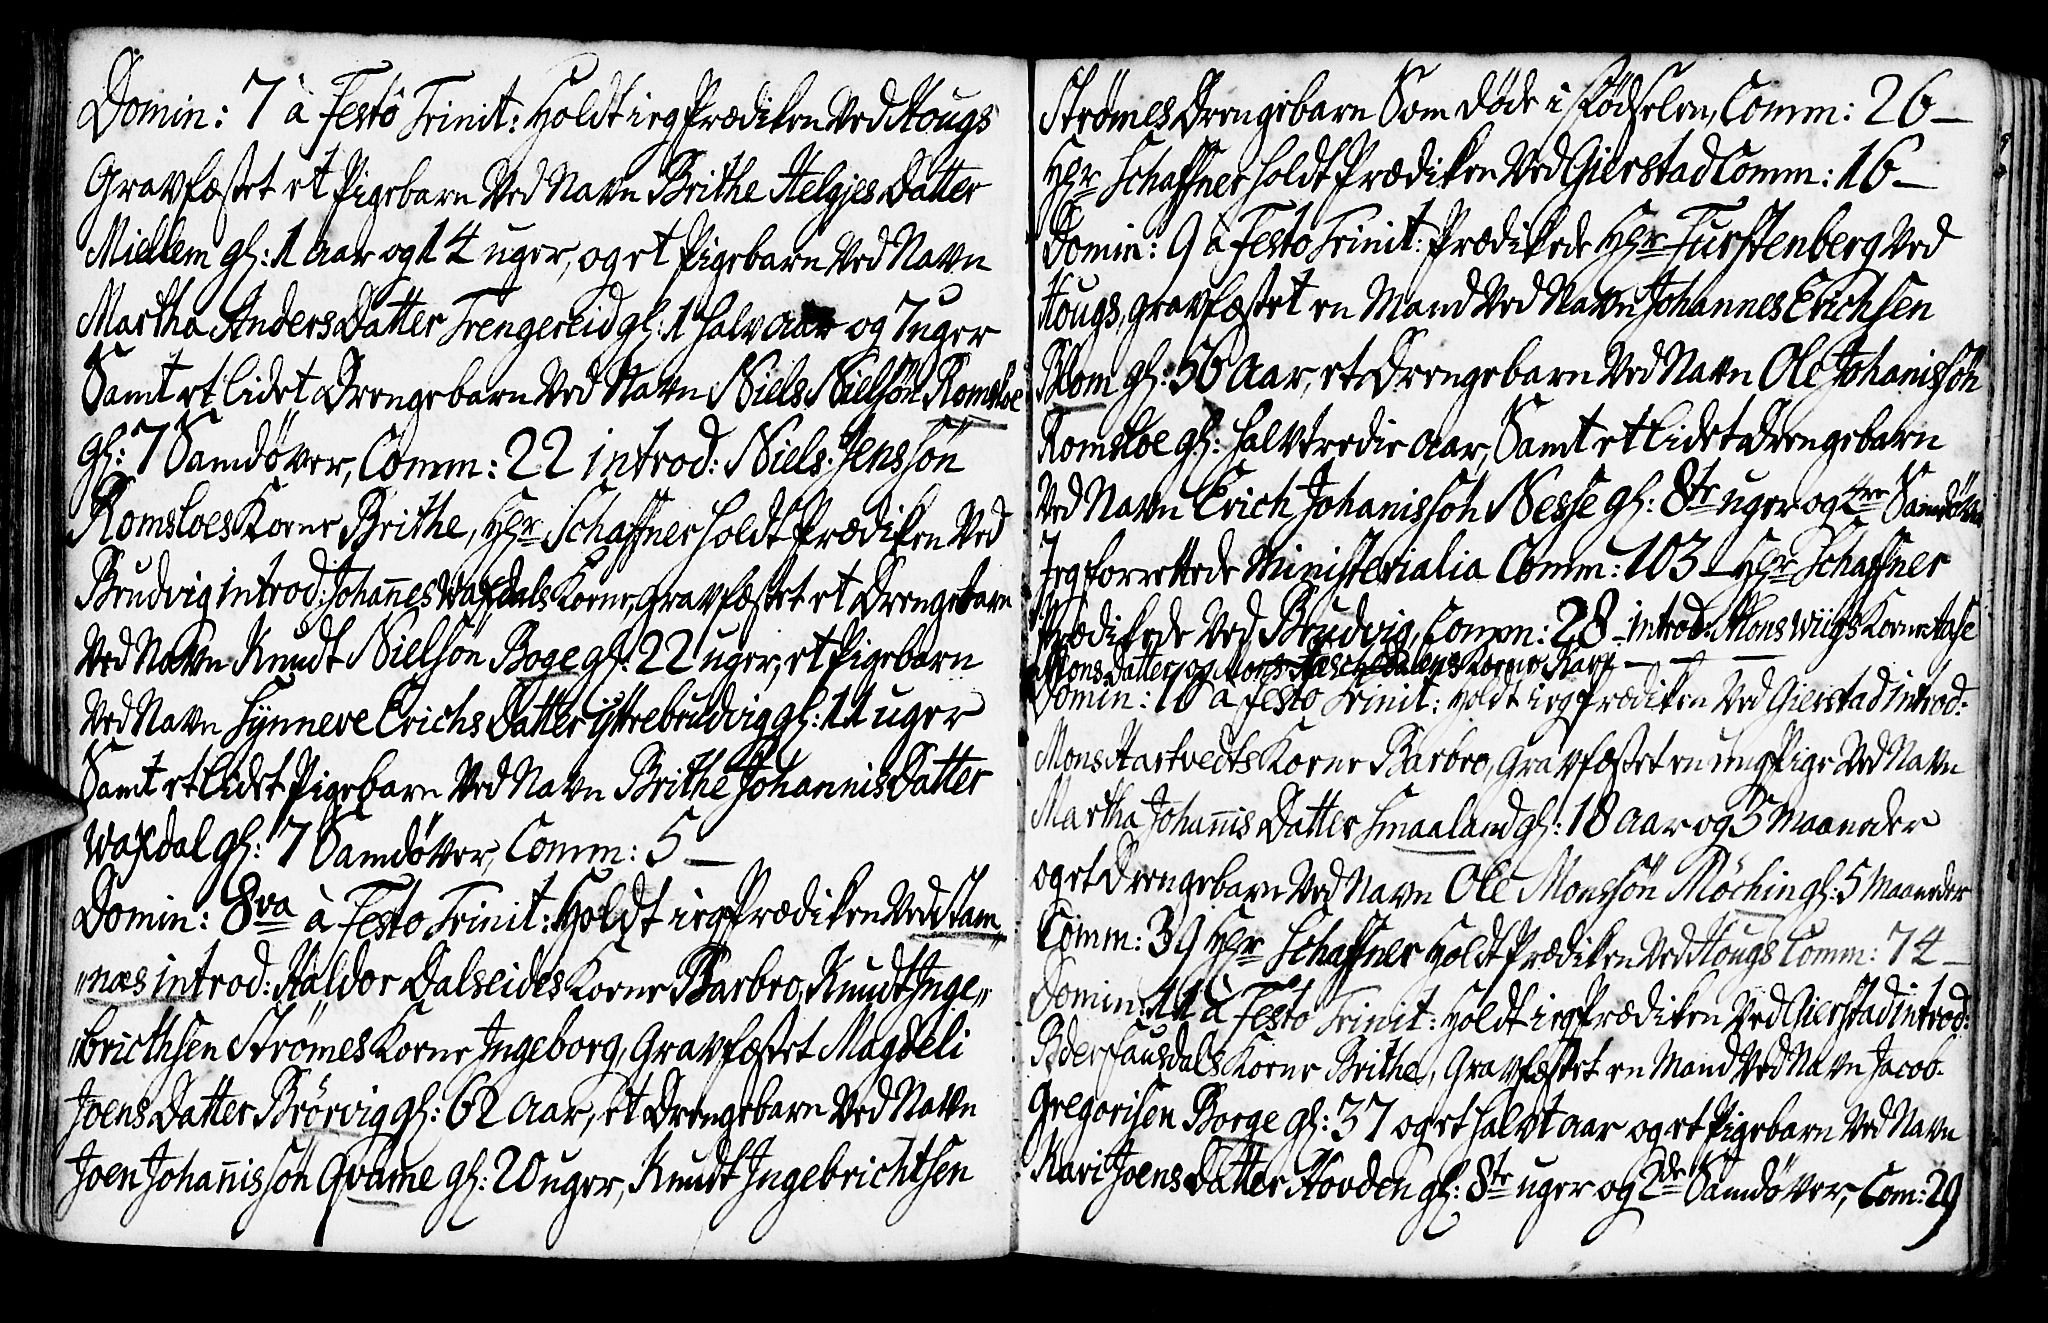 Domin: 7 à Festô Trinit: Holdt ieg Prædiken Ved Hougs
Gravfæstet et Pigebarn Ved Navn Brithe Helgjes Datter
Miellem gl: 1 Aar og 14 uger, og et Pigebarn Ved Navn
Martha Anders Datter Trengereid gl: 1 halv aar og 7 uger
Samt et lidet Drengebarn Ved Navn Niels Nielsön Romsloe
gl: 7 Samdöver, Comm: 22 introd: Niels Jenssön
Romsloes Korne Brithe, Hr Schaffner holdt Prædiken Ved
Brudvig introd: Johannes Waxdals Korne, Gravfæstet et Drengebarn
Ved Navn Knudt Nielsön Boge gl: 22 uger, et Pigebarn
Ved Navn Synneve Erichs Datter Yttrebrudvig gl: 11 uger
Samt et lidet Pigebarn Ved Navn Brithe Johannis Datter
Waxdal gl: 7 Samdöver, Comm: 5 —
Domin: 8va à Festo Trinit: Holdt ieg Prædiken Ved Stam„
„næs introd: Haldor Dalseides Korne Barbro, Knudt Inge„
„bricthsen Strömes Korne Ingeborg, Gravfæstet Magdeli
Joens Datter Brörvig gl: 62 Aar, et Drengebarn Ved Navn
Joen Johannis sön Qvame gl: 20 uger, Knudt Ingebrichtsen
Strömes Drengebarn Som döde i Födselen, Comm: 26 —
Hr Schaffner holdt Prædiken Ved Gierstad Comm: 16 —
Domin: 9 à Festo Trinit: Prædikede Hr Furstenberg Ved
Hougs, gravfæstet en Mand Ved Navn Johannes Erichsen
Blom gl: 56 Aar, et Drengebarn Ved Navn Ole Johanissön
Romsloe gl: halvtredie aar, Samt et lidet Drengebarn
Ved Navn Erich Johanissön Nesse gl: 8te uger og Samdöver
Jeg forrettede Ministerialia Comm: 103 — Hr Schaffner
Prædikede Ved Brudvig, Comm: 28 — introd: Mons Wiigs Korne Aase
Mons Datter, og Korne Kari — — —
Domin: 10 à festo Trinit: Holdt ieg Prædiken Ved Gierstad introd:
Mons Hartvedts Korne Barbro, Gravfæstet en ung Pige Ved Navn
Martha Johannis Datter Smaaland gl: 18 aar og 5 Maaneder
og et Drengebarn Ved Navn Ole Monssön Möching gl: 5 Maaneder
Comm: 39 Hr Schaffner Holdt Prædiken Ved Hougs Comm: 74 —
Domin: 11 à Festo Trinit: Holdt ieg Prædiken Ved Gierstad introd:
Peder Fausdals Korne Brithe, Gravfæstet en Mand Ved Navn Jacob
Gregorisen Borge gl: 37 og et halvt aar og et Pigebarn Ved Navn
Kari Joens Datter Hovden gl: 8te uger og 2de Samdöver, Com: 29